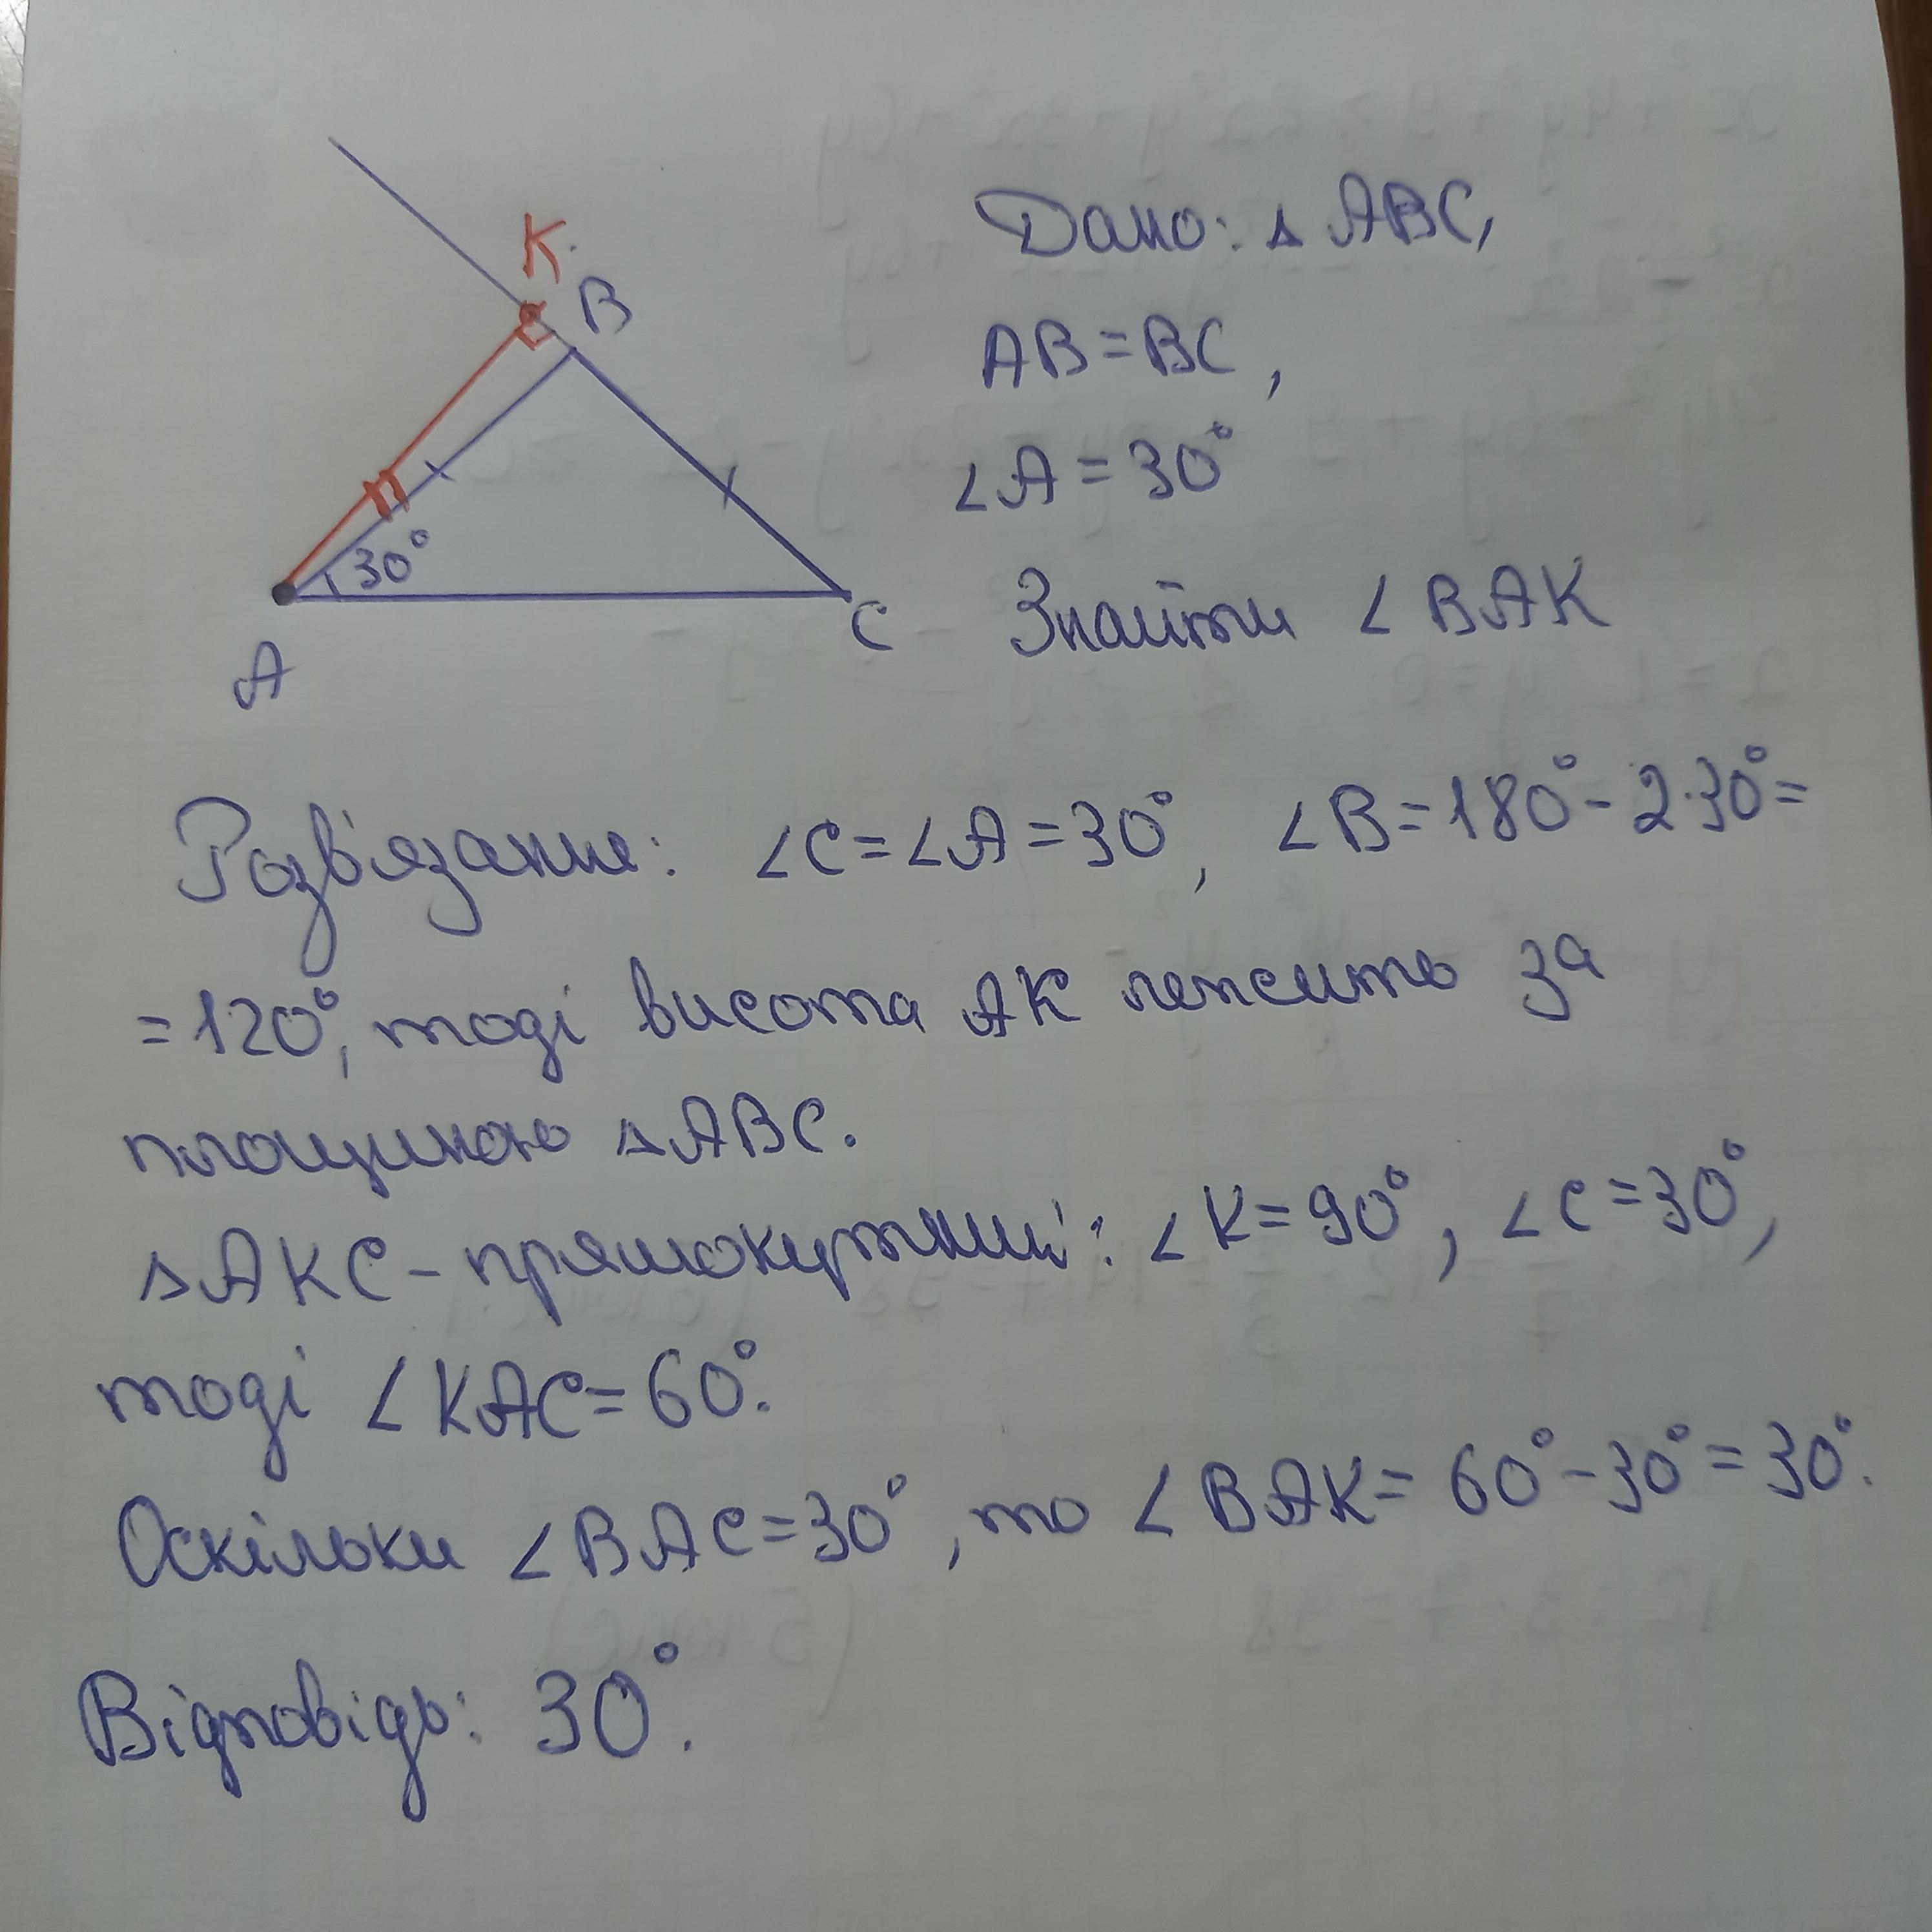 K
B
30°
A
C
Дано: △ ABC,
AB = BC,
∠A = 30°
Знайти ∠BAK
Розв'язання: ∠C = ∠A = 30°, ∠B = 180° - 2·30° =
= 120°, тоді висота AK лежить за
площиною △ABC.
△AKC - прямокутний: ∠K = 90°, ∠C = 30°,
тоді ∠KAC = 60°.
Оскільки ∠BAC = 30°, то ∠BAK = 60° - 30° = 30°.
Відповідь: 30°.